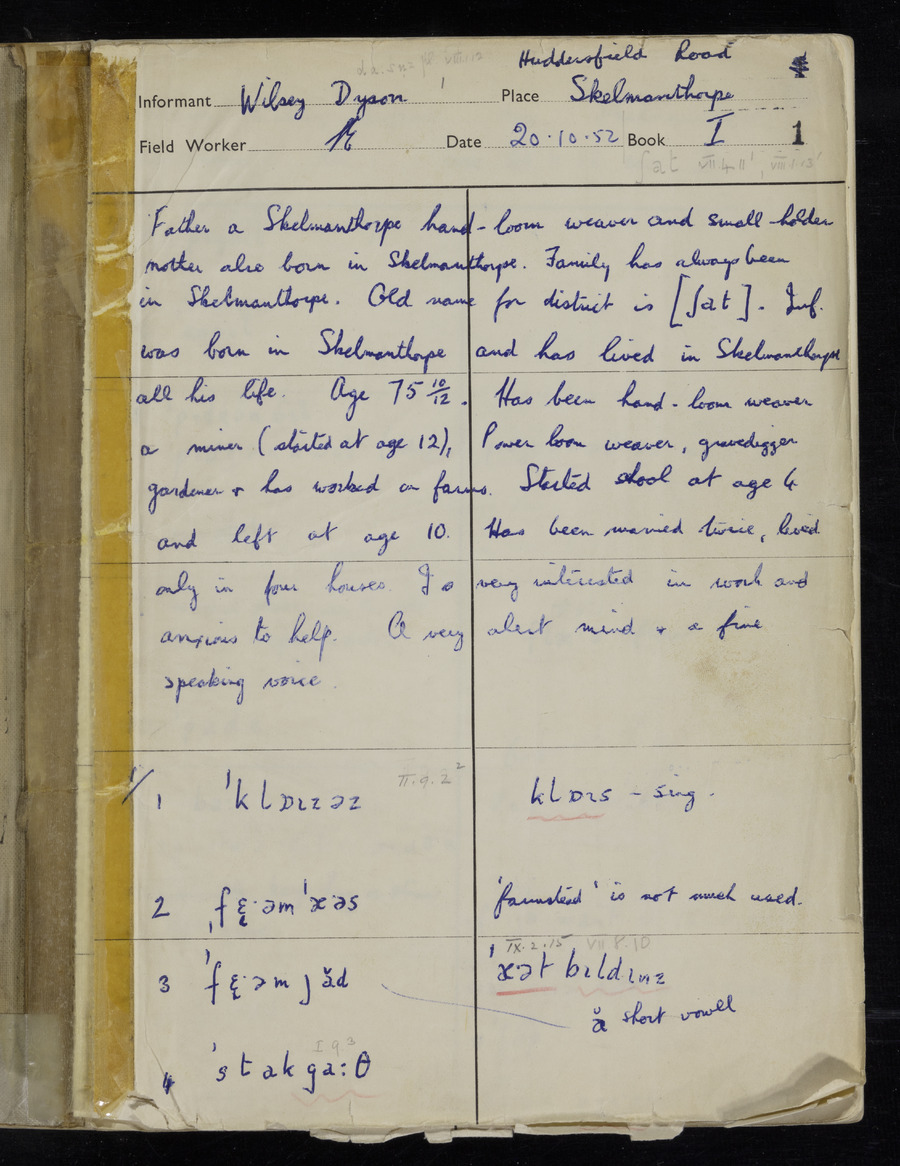 Huddersfield Road
Informant Wilsey Dyson Place Skelmanthorpe
Field Worker Date 20·10·52 Book I 1
ʃat VII 4 11, VIII·1·13
Father a Skelmanthorpe hand-loom weaver and small-holder
mother also born in Skelmanthorpe. Family has always been
in Skelmanthorpe. Old name for district is [ʃat]. Inf.
was born in Skelmanthorpe and has lived in Skelmanthorpe
all his life. Age 75 10/12. Has been hand-loom weaver
a miner (started at age 12), Power loom weaver, gravedigger
gardener + has worked on farms. Started school at age 4
and left at age 10. Has been married twice, lived
only in four houses. Is very interested in work and
anxious to help. A very alert mind + a fine
speaking voice
1/ 1 ˈklɒɪzəz II.9.2² klɒɪs – sing.
2 ˌfɛ̨·əmˈæ·əs 'farmstead' is not much used.
IX.2.15, VII 8.10
3 ˈfɛ̨·əmjăd ˈæ·ət bɪldɪnz
ă short vowel
I 9 3
4 ˈstakga:θ